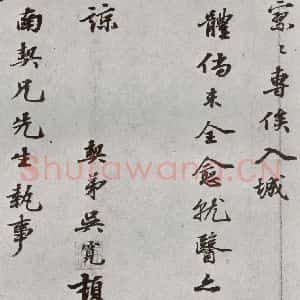 專俟入城
體倘未全愈就醫
諒 契弟吳寬頓
南契兄先生執事
Shufawang.CN